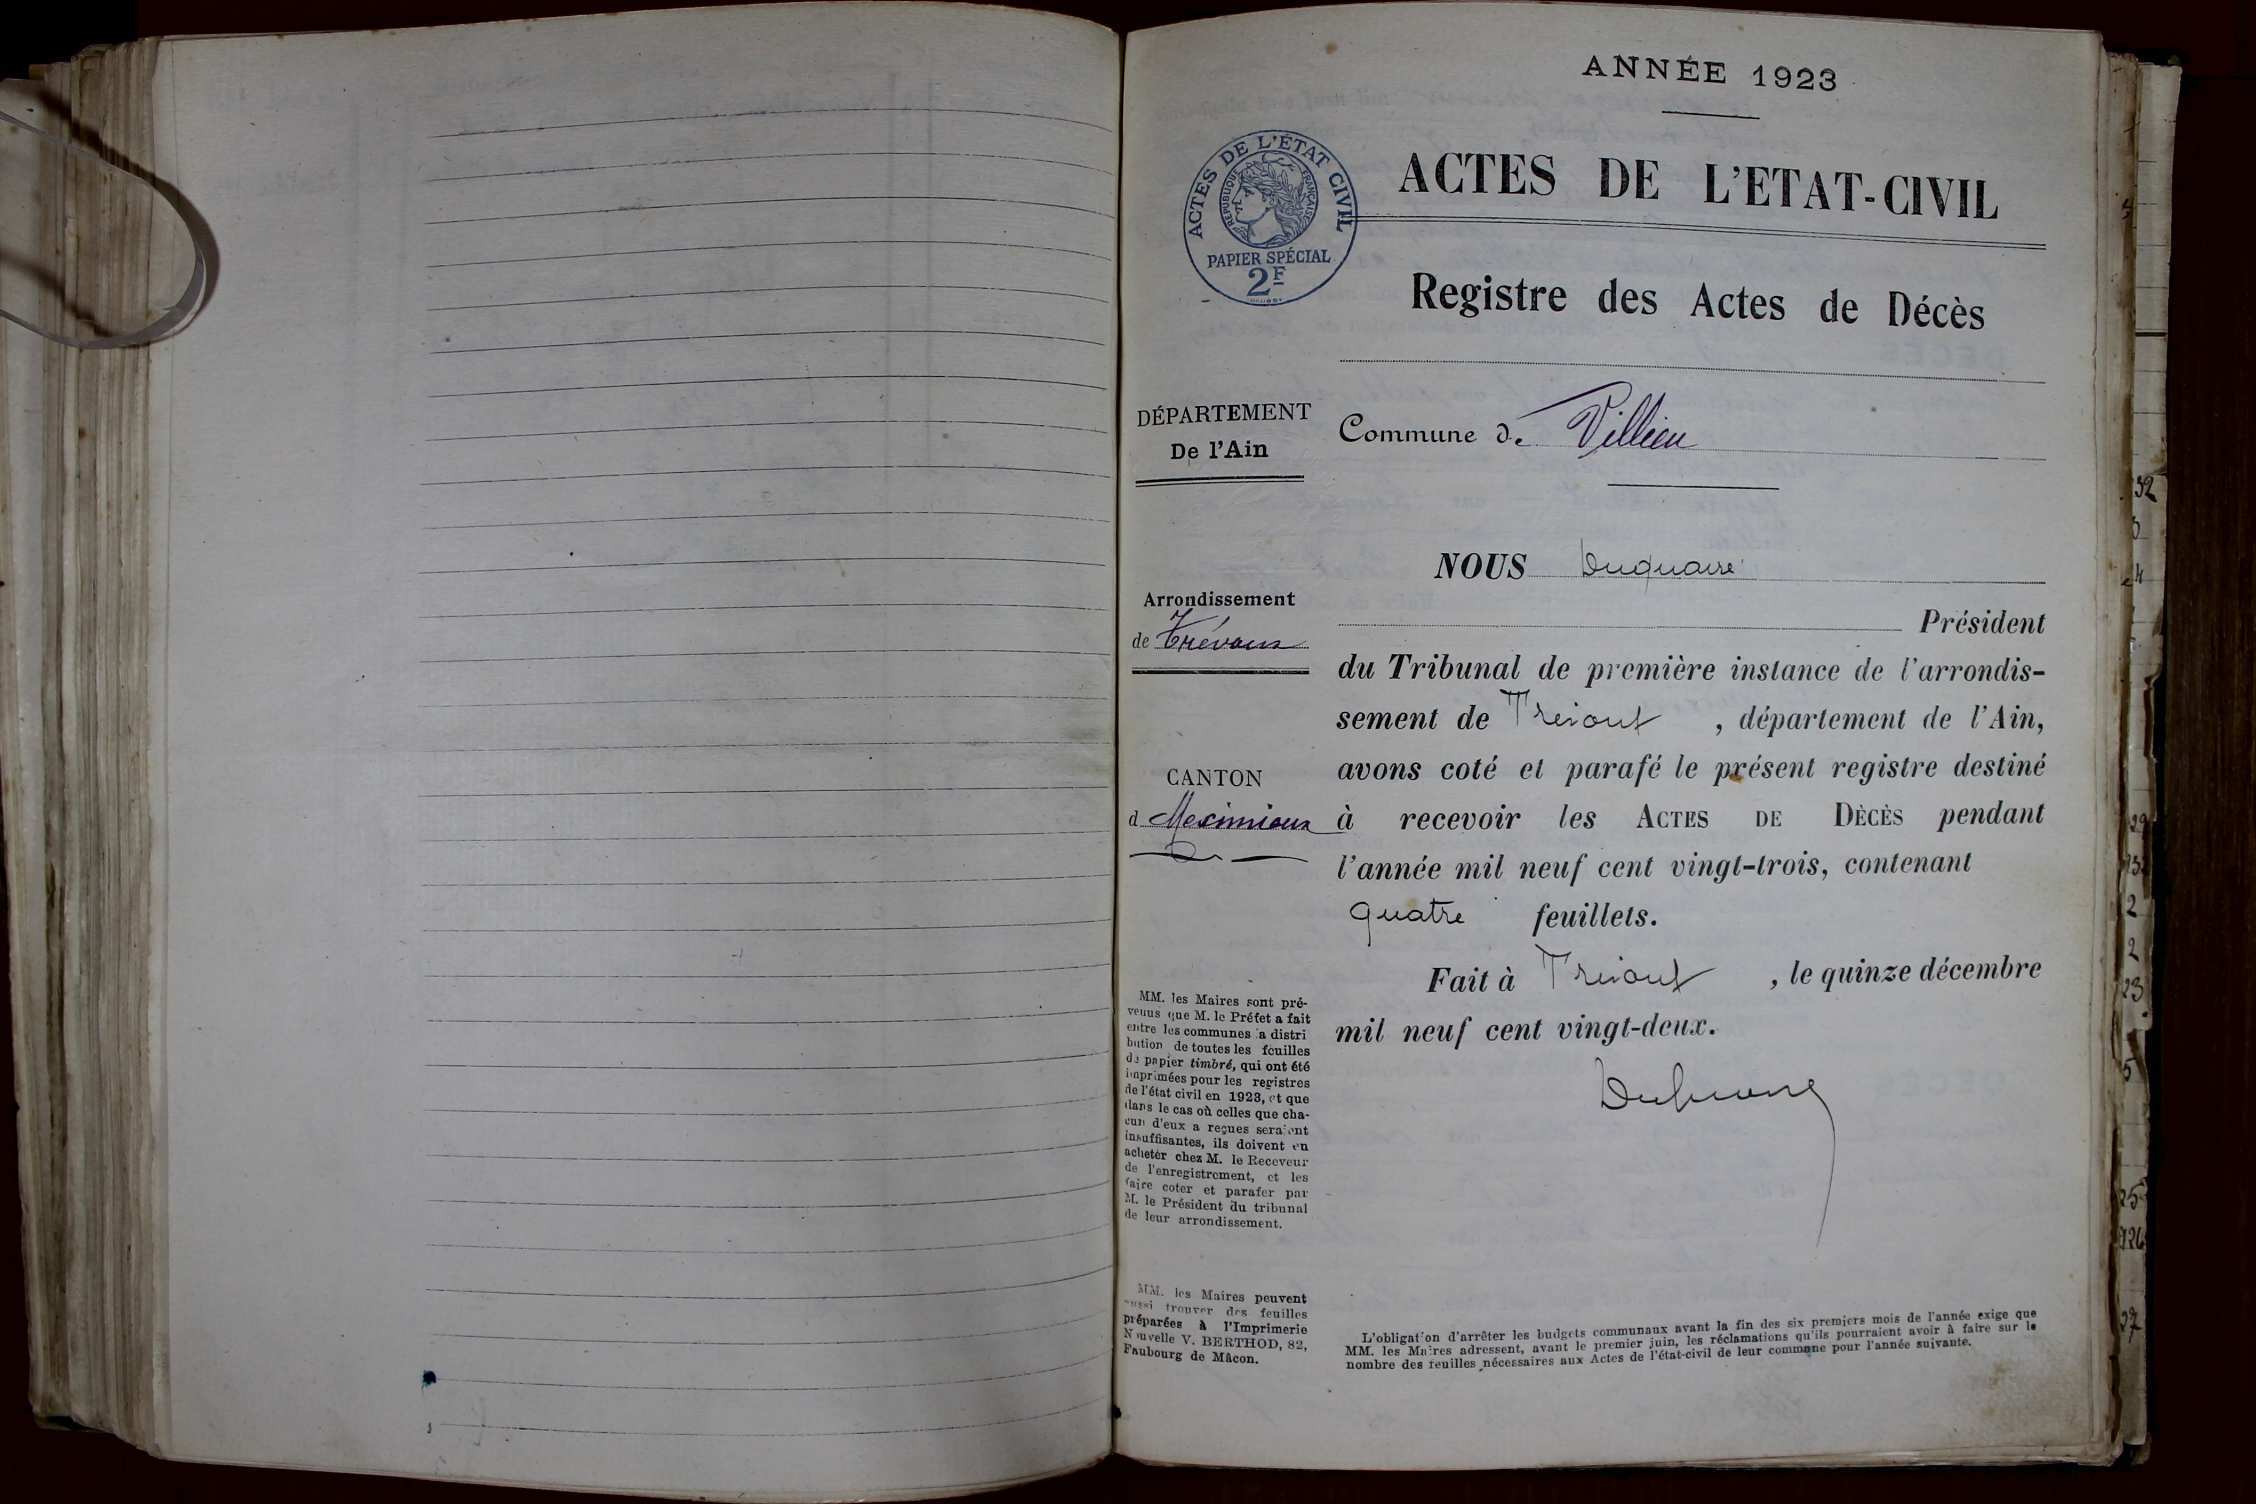 ANNÉE 1923
ACTES DE L'ÉTAT CIVIL
RÉPUBLIQUE FRANÇAISE
PAPIER SPÉCIAL
2F
ACTES DE L'ETAT-CIVIL
Registre des Actes de Décès
DÉPARTEMENT
De l'Ain
Commune de Villieu
Arrondissement
de Trévoux
CANTON
d Meximieux
MM. les Maires sont pré-
venus que M. le Préfet a fait
entre les communes la distri
bution de toutes les feuilles
de papier timbré, qui ont été
imprimées pour les registres
de l'état civil en 1923, et que
dans le cas où celles que cha-
cun d'eux a reçues seraient
insuffisantes, ils doivent en
acheter chez M. le Receveur
de l'enregistrement, et les
faire coter et parafer par
M. le Président du tribunal
de leur arrondissement.
MM. les Maires peuvent
aussi trouver des feuilles
préparées à l'Imprimerie
Nouvelle V. BERTHOD, 82,
Faubourg de Mâcon.
NOUS Duquaire
Président
du Tribunal de première instance de l'arrondis-
sement de Trévoux , département de l'Ain,
avons coté et parafé le présent registre destiné
à recevoir les ACTES DE DÈCÈS pendant
l'année mil neuf cent vingt-trois, contenant
quatre feuillets.
Fait à Trévoux , le quinze décembre
mil neuf cent vingt-deux.
Duquaire
L'obligation d'arrêter les budgets communaux avant la fin des six premiers mois de l'année exige que
MM. les Maires adressent, avant le premier juin, les réclamations qu'ils pourraient avoir à faire sur le
nombre des feuilles nécessaires aux Actes de l'état-civil de leur commune pour l'année suivante.